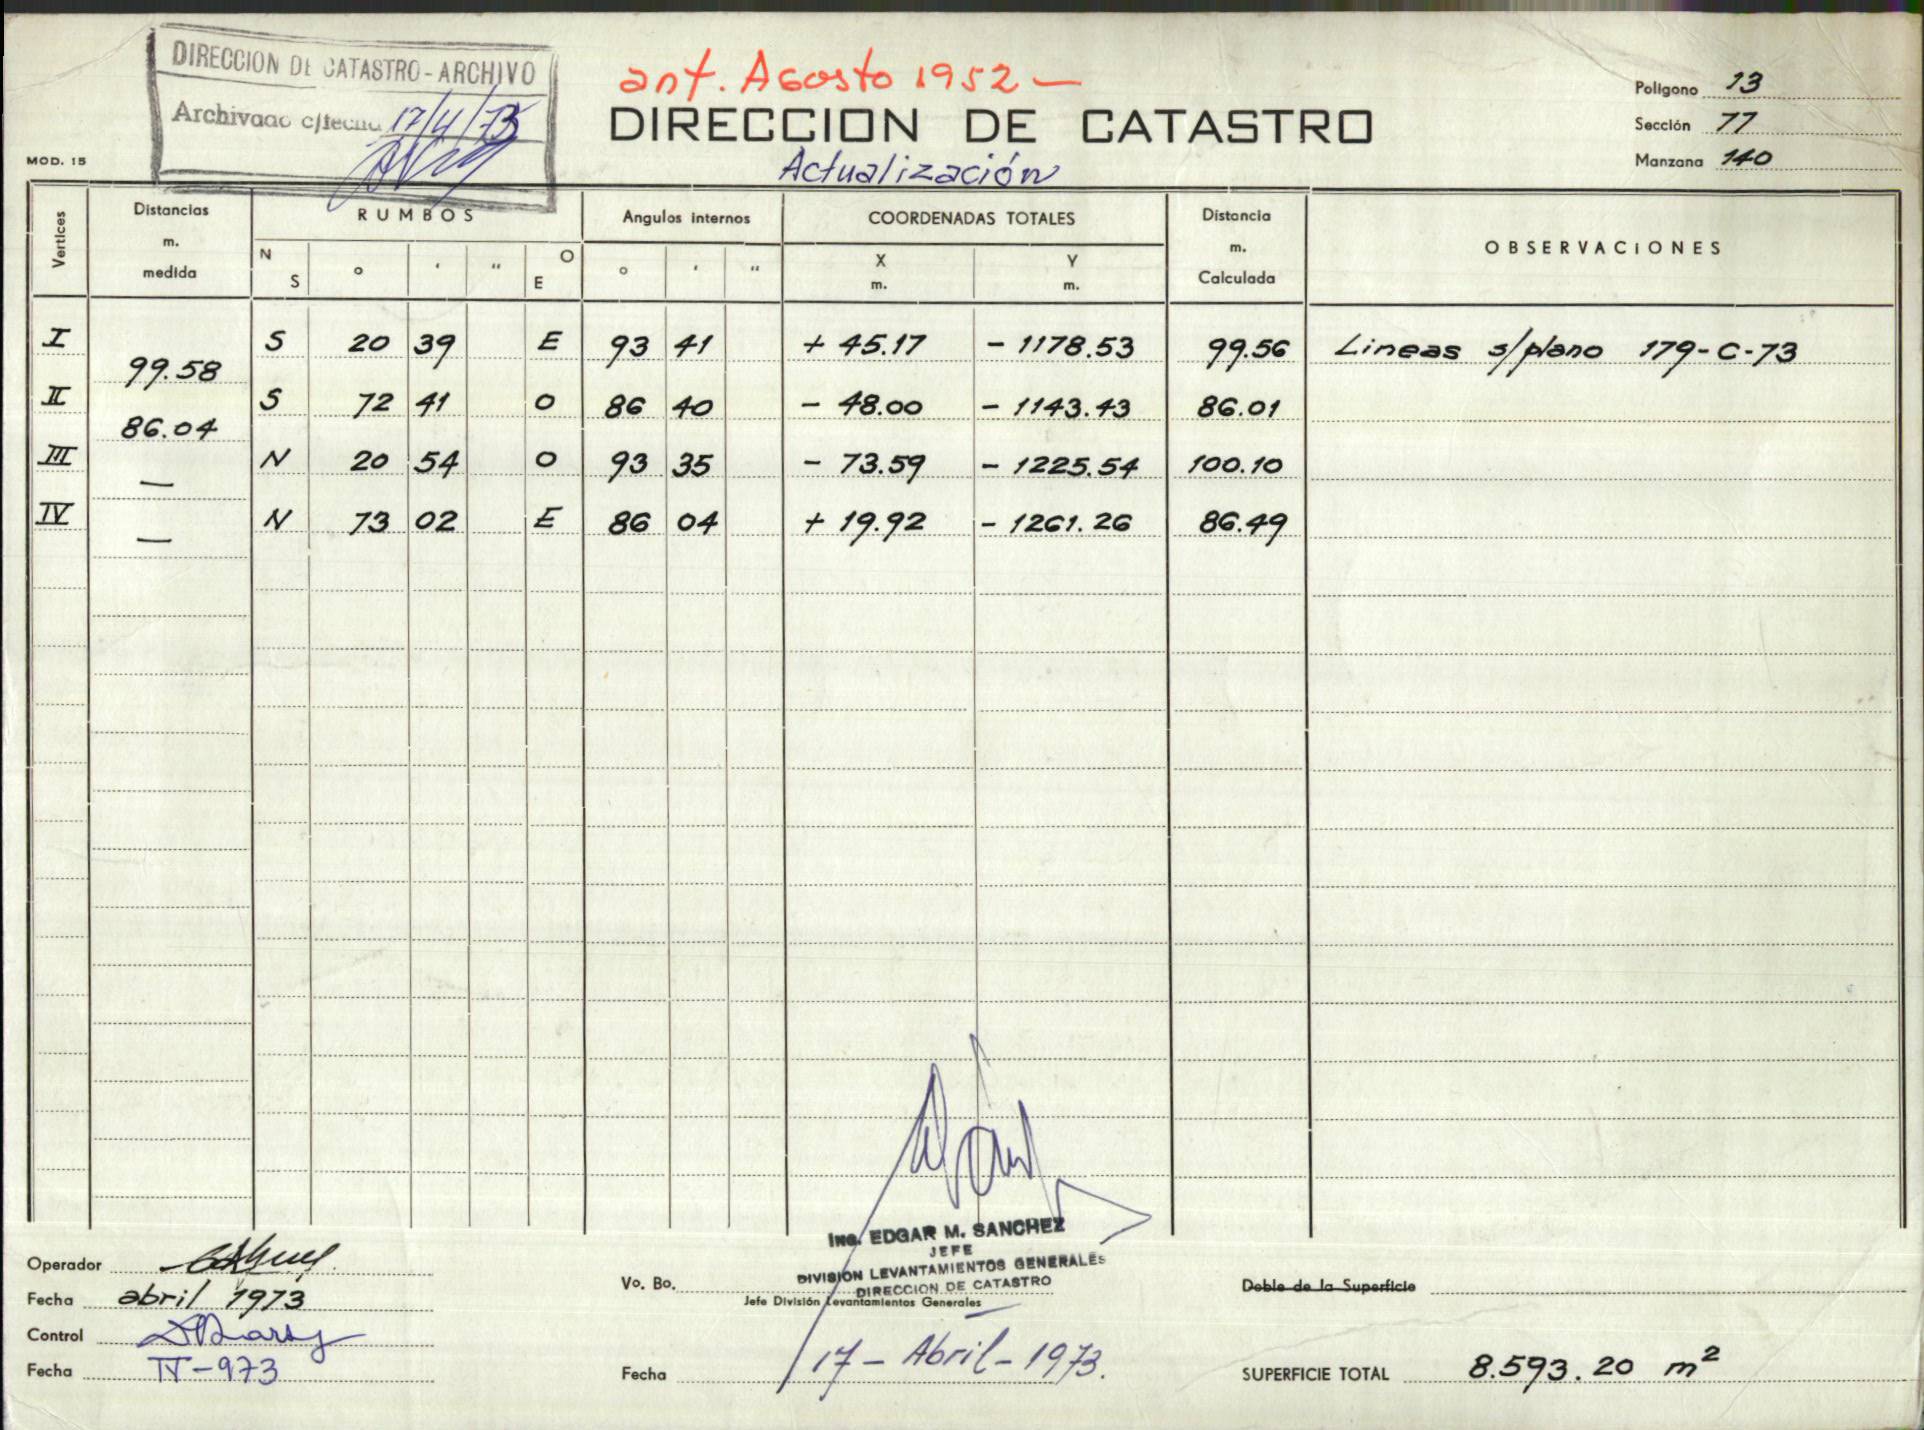 DIRECCION DE CATASTRO - ARCHIVO
Archivado c/fecha 17/4/73
ant. Agosto 1952 -
DIRECCION DE CATASTRO
Actualización
MOD. 15
Poligono 13
Sección 77
Manzana 140
Vertices Distancias m. medida RUMBOS Angulos internos COORDENADAS TOTALES Distancia m. Calculada OBSERVACIONES
N S ° ' " O E ° ' " X m. Y m.
I S 20 39 E 93 41 + 45.17 - 1178.53 99.56 Lineas s/plano 179-C-73
99.58
II S 72 41 O 86 40 - 48.00 - 1143.43 86.01
86.04
III N 20 54 O 93 35 - 73.59 - 1225.54 100.10
—
IV N 73 02 E 86 04 + 19.92 - 1261.26 86.49
—
Ing. EDGAR M. SANCHEZ
JEFE
DIVISION LEVANTAMIENTOS GENERALES
DIRECCION DE CATASTRO
Operador
Fecha abril 1973
Control
Fecha IV-973
Vo. Bo.
Jefe División Levantamientos Generales
Fecha 17 - Abril - 1973.
Doble de la Superficie
SUPERFICIE TOTAL 8.593.20 m²